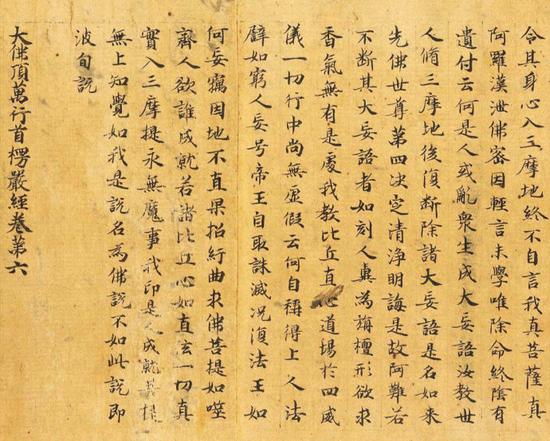 令其身心入三摩地終不自言我真菩薩真
阿羅漢泄佛密因輕言末學唯除命終陰有
遺付云何是人或亂衆生成大妄語汝教世
人脩三摩地後復斷除諸大妄語是名如來
先佛世尊第四決定清淨明誨是故阿難若
不斷其大妄語者如刻人糞為旃檀形欲求
香氣無有是處我教比丘直心道場於四威
儀一切行中尚無虛假云何自稱得上人法
譬如窮人妄号帝王自取誅滅況復法王如
何妄竊因地不直果招紆曲求佛菩提如噬
齋人欲誰成就若諸比丘心如直弦一切真
實入三摩提永無魔事我印是人成就菩提
無上知覺如我是說名為佛說不如此說即
波旬說
大佛頂萬行首楞嚴經卷第六